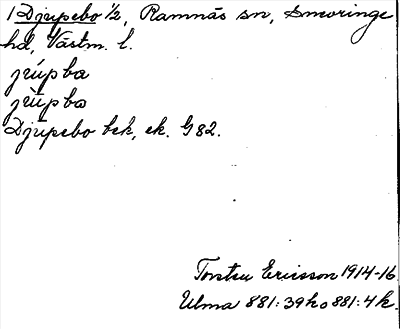 1 Djupebo 1/2, Ramnäs sn, Snevringe
hd, Västm. l.
júpba
jùpbo
Djupebo bek, ek. G 82.
Torsten Ericsson 1914-16
Ulma 881:39 h o 881:4 k.